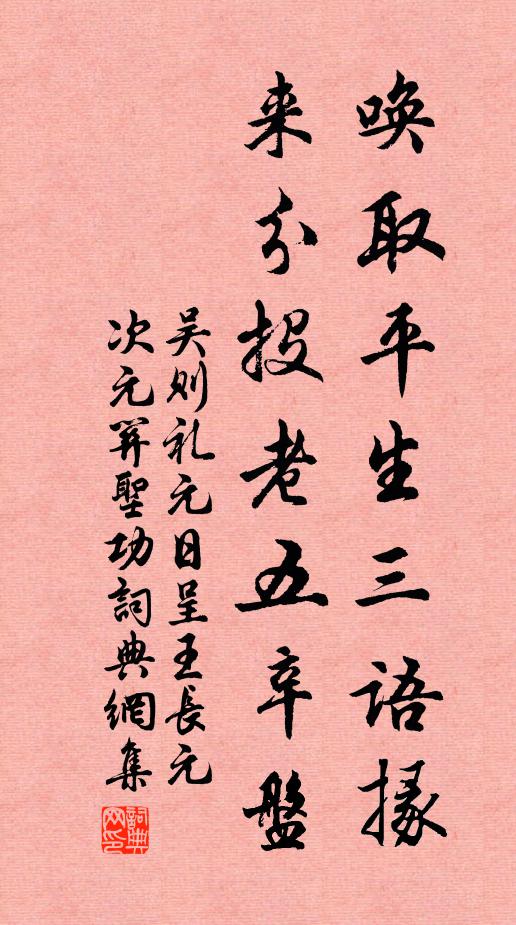 唤取平生三语掾
来分投老五辛盤
吴则礼元日呈王长元
次元笄聖功詞典網集
詞典网印